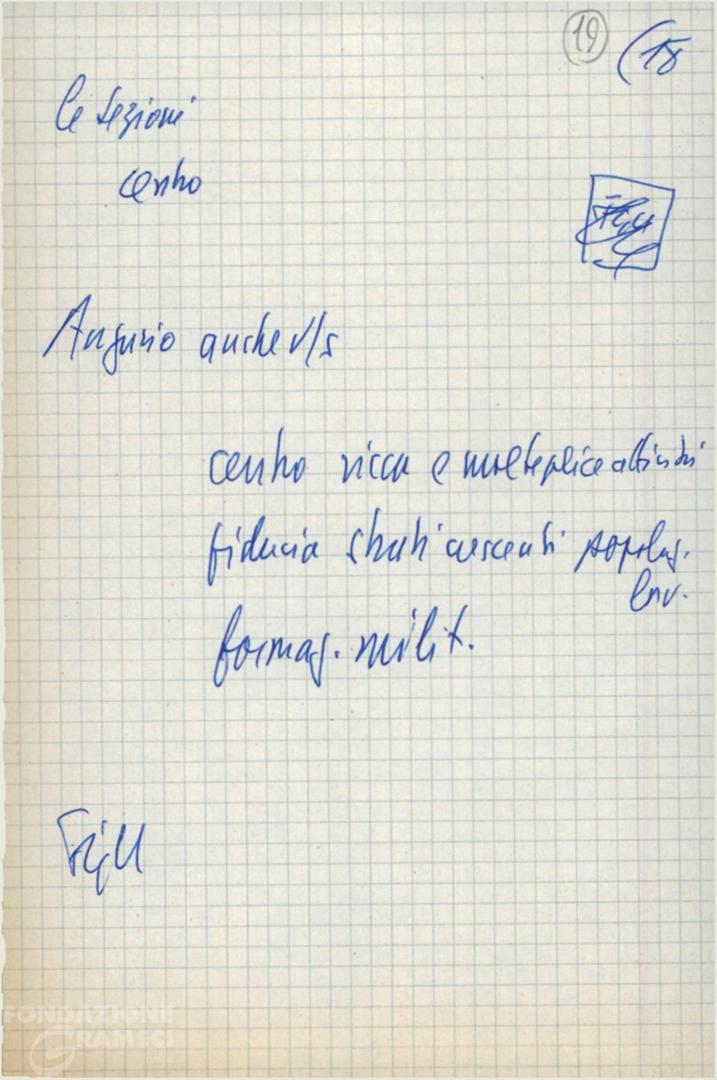 19 (18
le sezioni
centro
Auguro anche v/s
centro ricca e molteplice attività
fiducia strati crescenti popolaz.
lav.
formaz. milit.
FGCI
FONDAZIONE
GRAMSCI